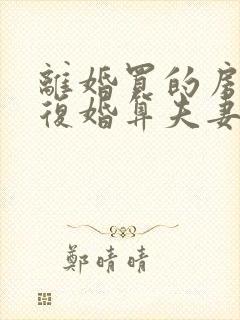 離婚買的房
復婚算夫妻
鄭晴晴